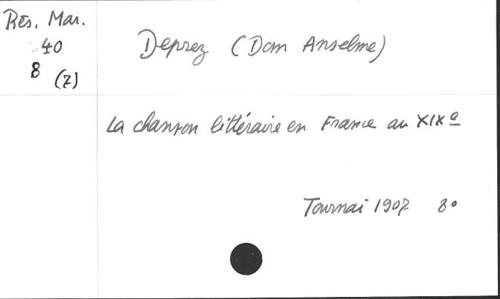 Rés. Mar.
40
8 (7)
Deprez (Dom Anselme)
La chanson littéraire en France au XIXe
Tournai 1907 8°